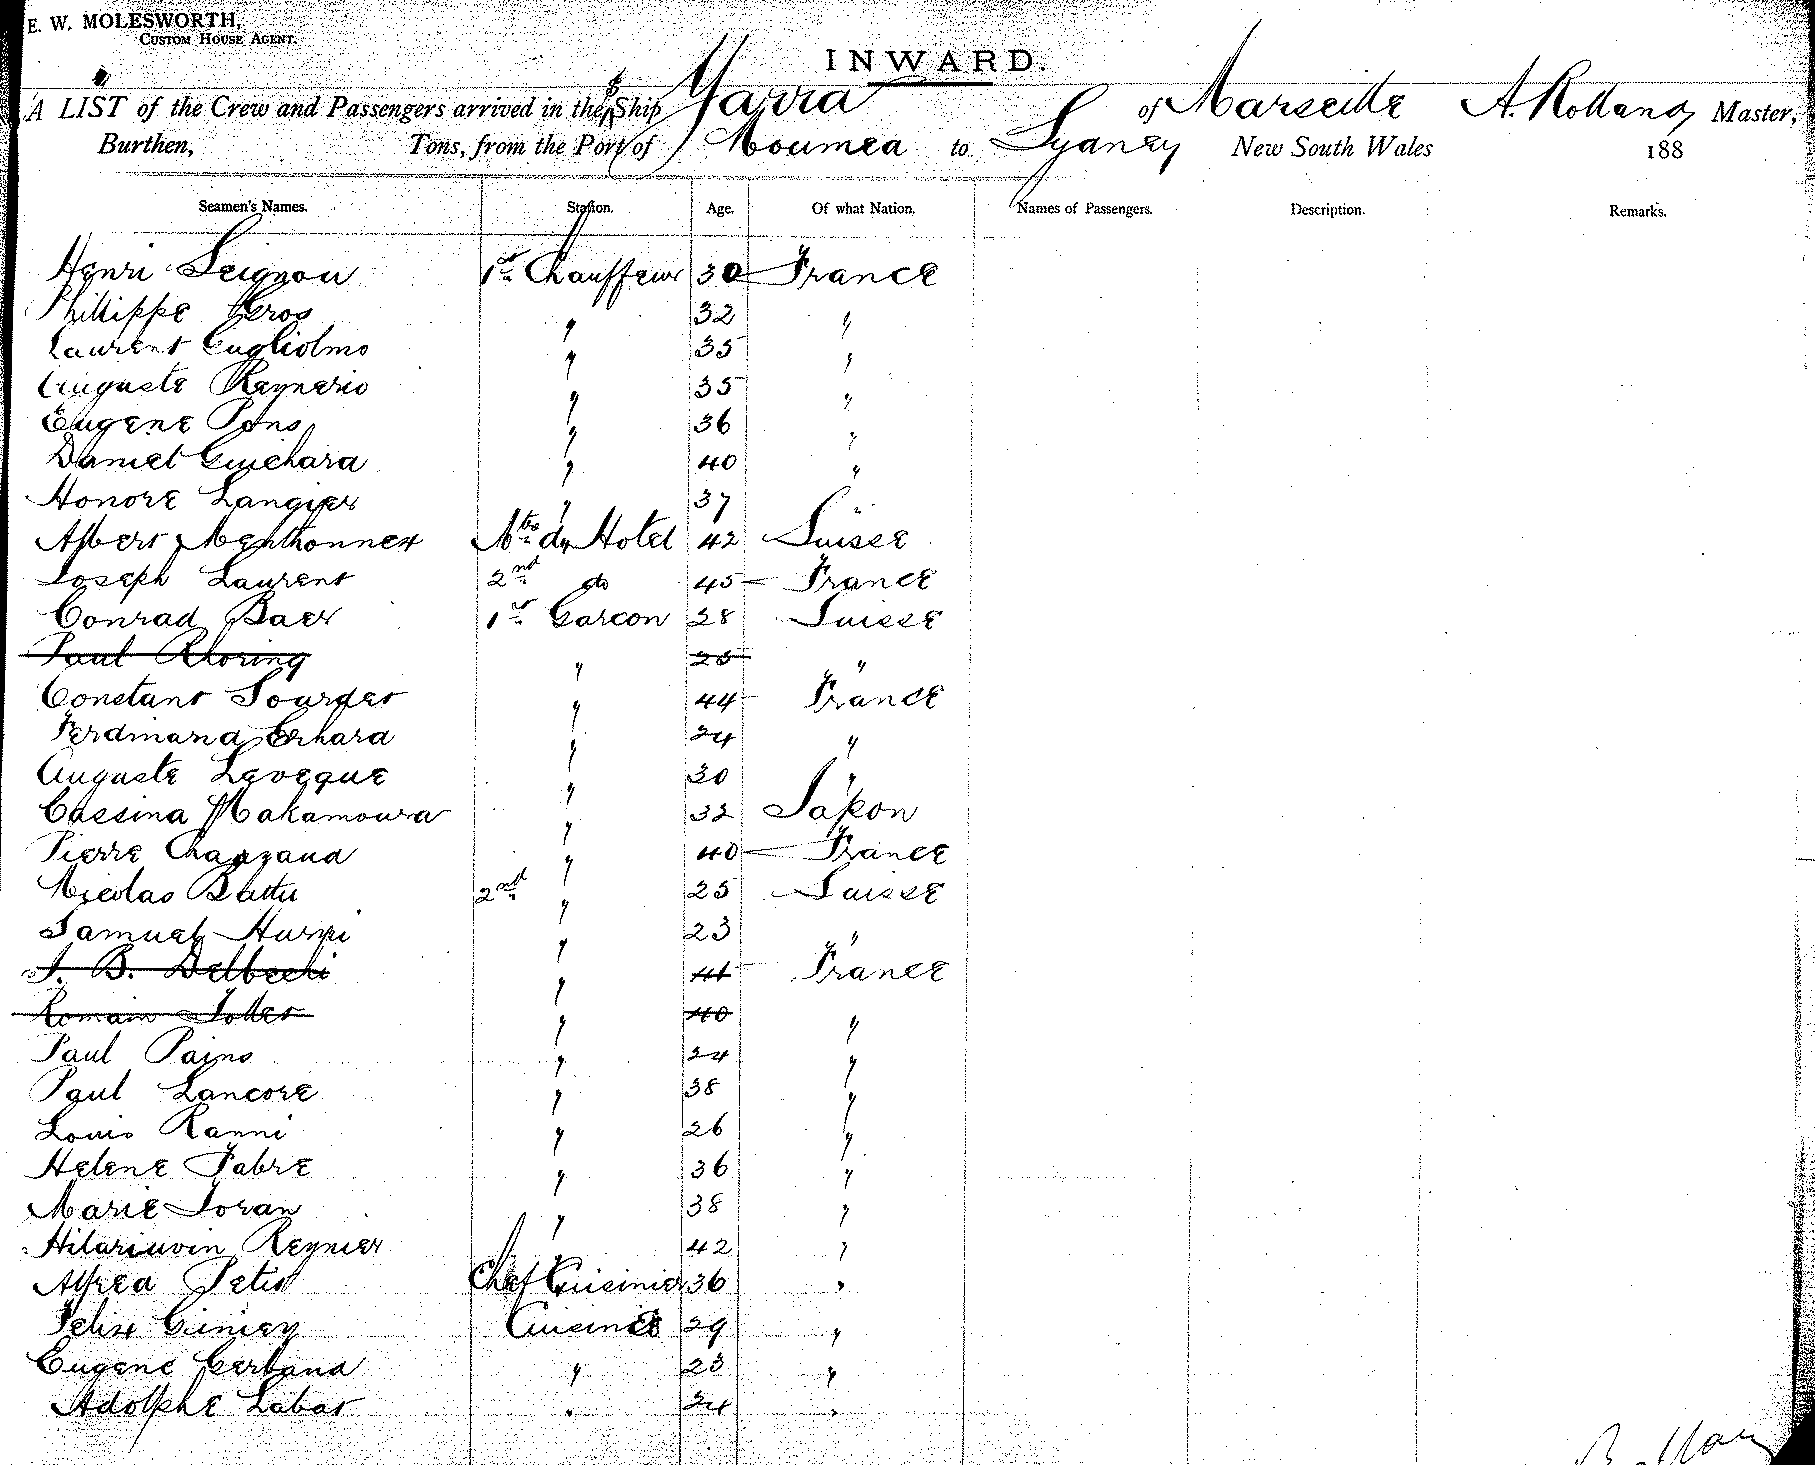 E. W. MOLESWORTH,
CUSTOM HOUSE AGENT.
INWARD.
A LIST of the Crew and Passengers arrived in the Ship Yarra of Marseille A. Rolland, Master,
Burthen, Tons, from the Port of Noumea to Sydney New South Wales 188
Seamen's Names. Station. Age. Of what Nation. Names of Passengers. Description. Remarks.
Henri Seignou 1st Chauffeur 30 France
Phillippe Gros " 32 "
Laurent Guglielmo " 35 "
Auguste Reynerio " 35 "
Eugene Pons " 36 "
Daniel Guichard " 40 "
Honore Laugier " 37 "
Albert Menthonnex Mtre d' Hotel 42 Suisse
Joseph Laurent 2nd do 45 France
Conrad Baer 1st Garcon 28 Suisse
Paul " 25 "
Constant Sourdet " 44 France
Ferdinand Erhard " 24 "
Auguste Leveque " 30 "
Cassina Nakamoura " 32 Japon
Pierre Chapzaud " 40 France
Nicolas Battu 2nd " 25 Suisse
Samuel " 23 "
J. B. Delbecki " 41 France
Romain " 40 "
Paul Pains " 24 "
Paul Lancore " 38 "
Louis Ranni " 26 "
Helene Fabre " 36 "
Marie Joran " 38 "
Reynier " 42 "
Alfred Petit Chef Cuisinier 36 "
Felix Cuisinier 29 "
Eugene Gerbaud " 23 "
Adolphe Labat " 24 "